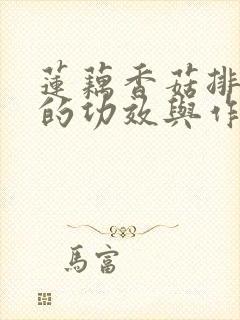 蓮藕香菇排
的功效與作
馬富